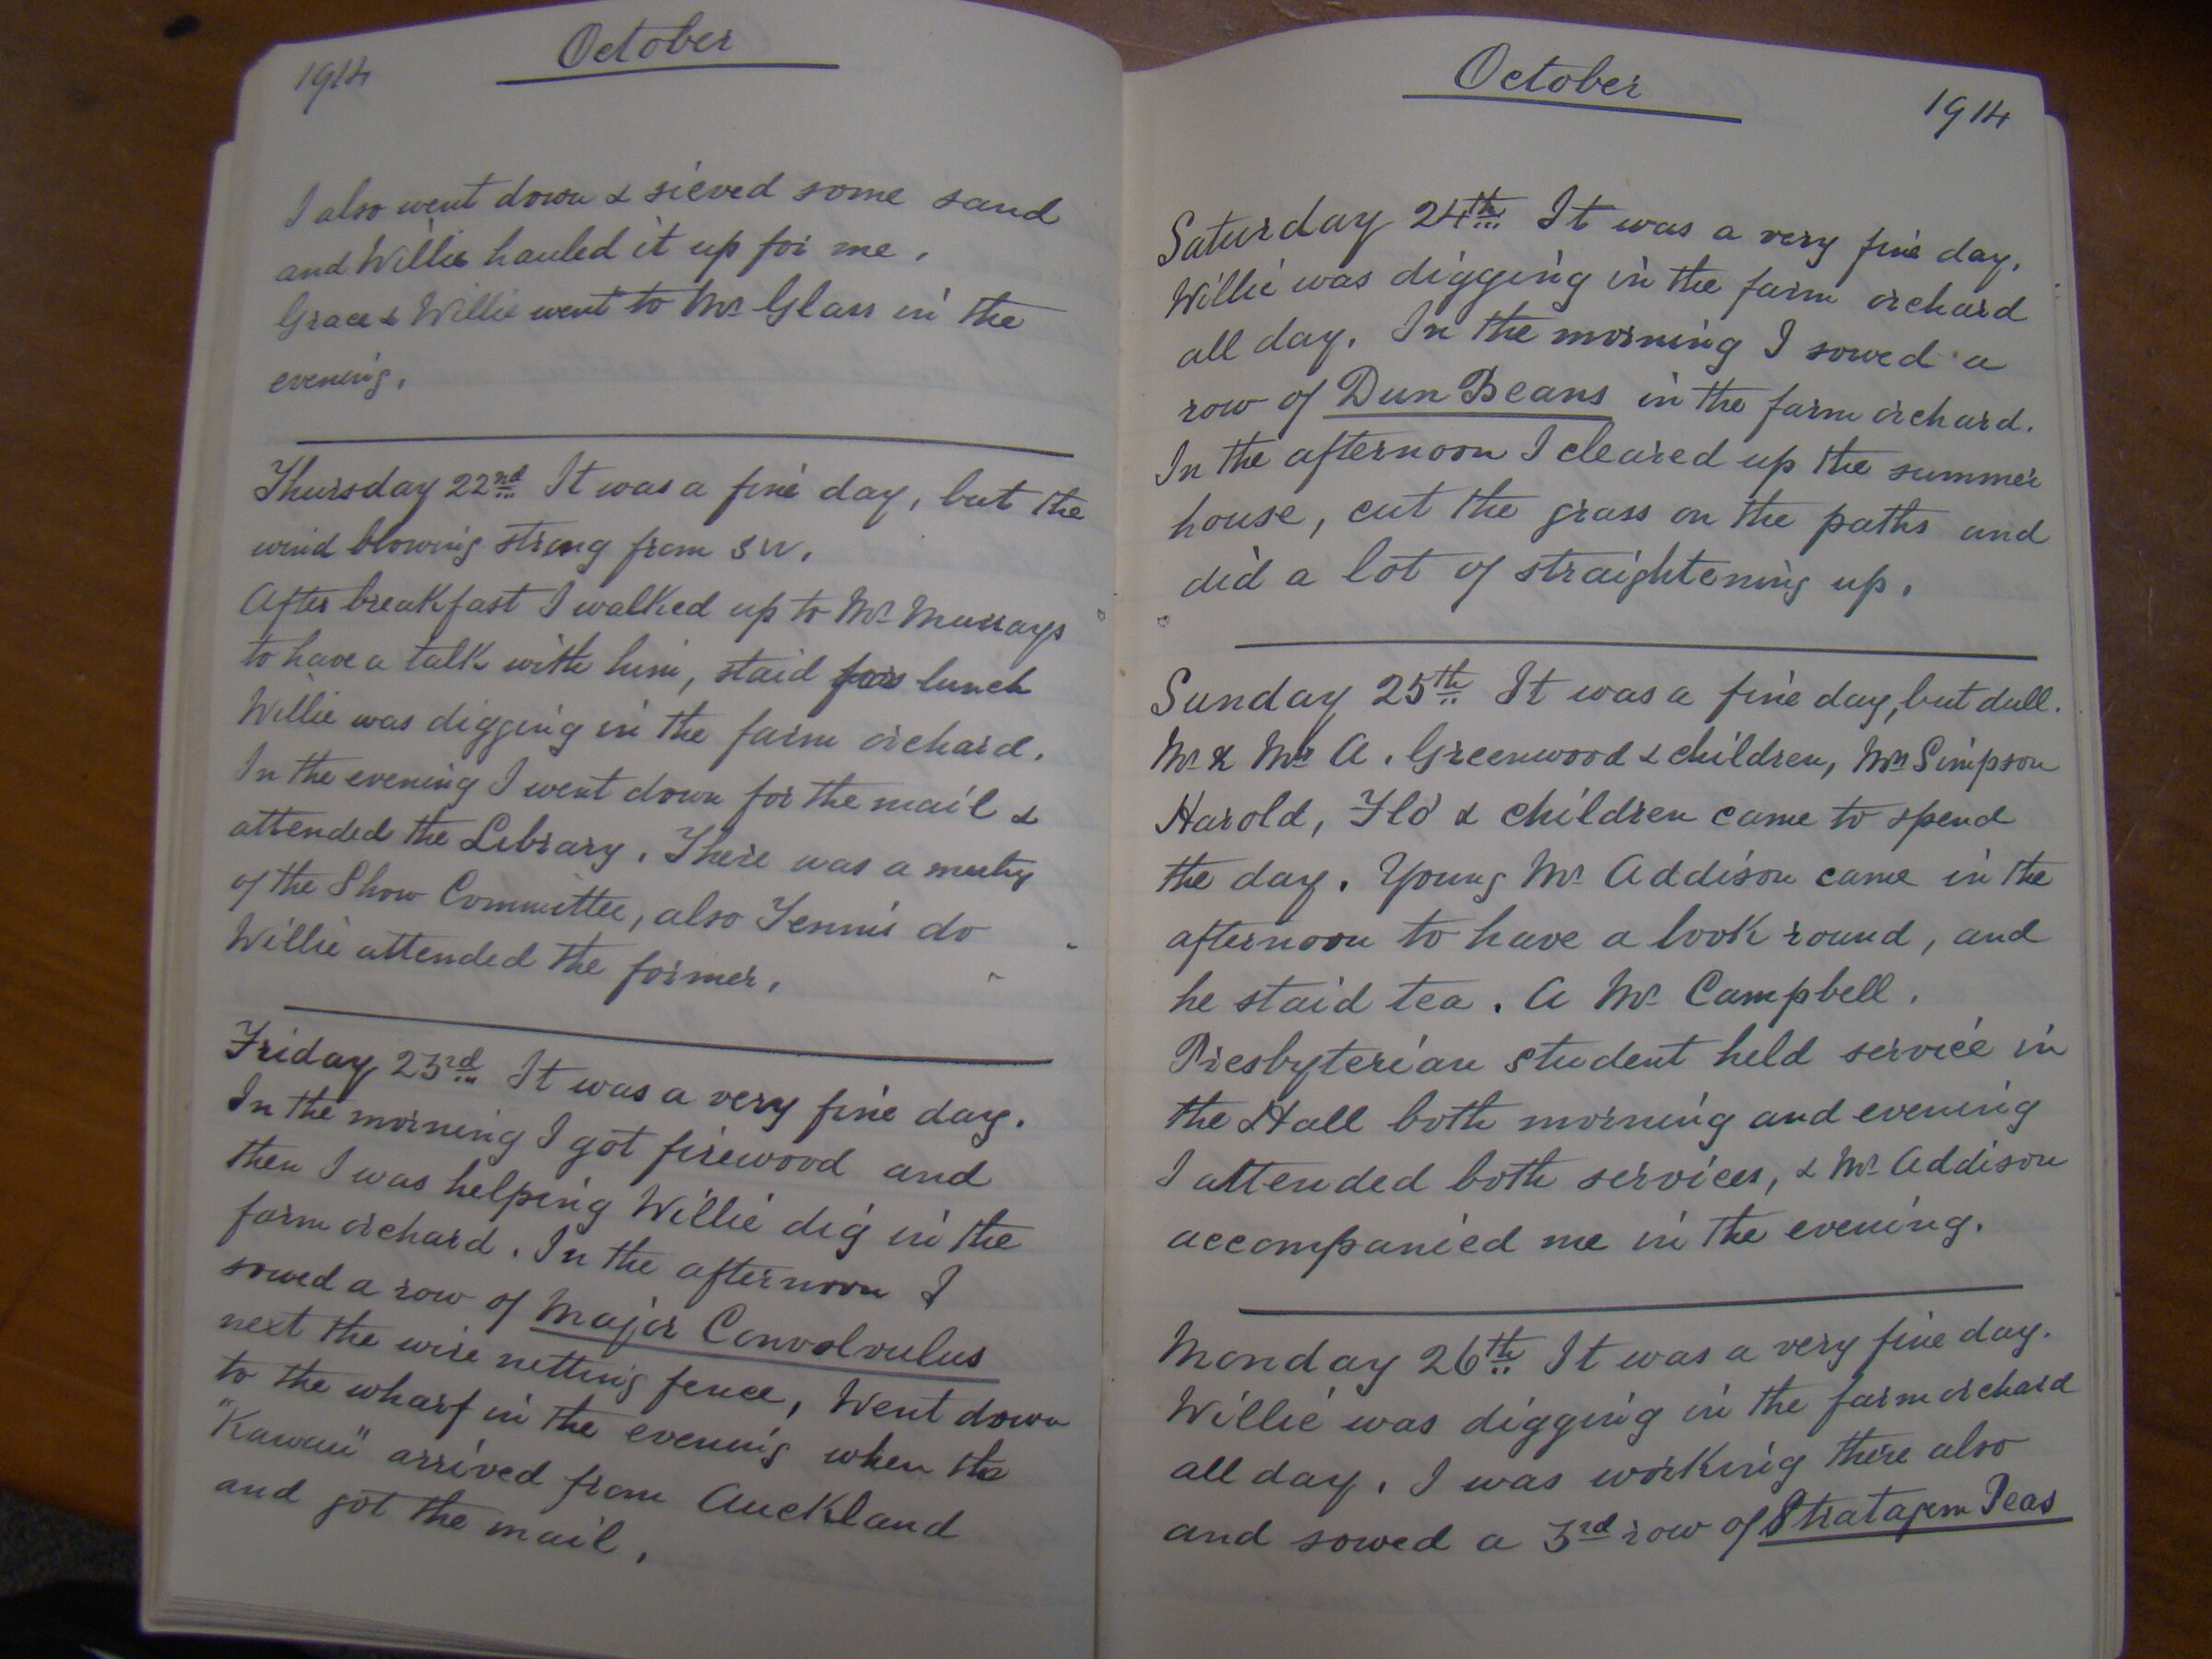 1914
October
I also went down & sieved some sand
and Willie hauled it up for me.
Grace & Willie went to Mr Glass in the
evening.
Thursday 22nd It was a fine day, but the
wind blowing strong from SW.
After breakfast I walked up to Mr Murrays
to have a talk with him, staid for lunch
Willie was digging in the farm orchard.
In the evening I went down for the mail &
attended the Library. There was a meeting
of the Show Committee, also Tennis do
Willie attended the former.
Friday 23rd It was a very fine day.
In the morning I got firewood and
then I was helping Willie dig in the
farm orchard. In the afternoon I
sowed a row of Major Convolvulus
next the wire netting fence, Went down
to the wharf in the evening when the
"Kawau" arrived from Auckland
and got the mail.
October
1914
Saturday 24th It was a very fine day.
Willie was digging in the farm orchard
all day. In the morning I sowed a
row of Dun Beans in the farm orchard.
In the afternoon I cleared up the summer
house, cut the grass on the paths and
did a lot of straightening up.
Sunday 25th It was a fine day, but dull.
Mr & Mrs A. Greenwood & children, Mrs Simpson
Harold, Flo & children came to spend
the day. Young Mr Addison came in the
afternoon to have a look round, and
he staid tea. A Mr Campbell.
Presbyterian student held service in
the Hall both morning and evening
I attended both services, & Mr Addison
accompanied me in the evening.
Monday 26th It was a very fine day.
Willie was digging in the farm orchard
all day. I was working there also
and sowed a 3rd row of Stratagem Peas